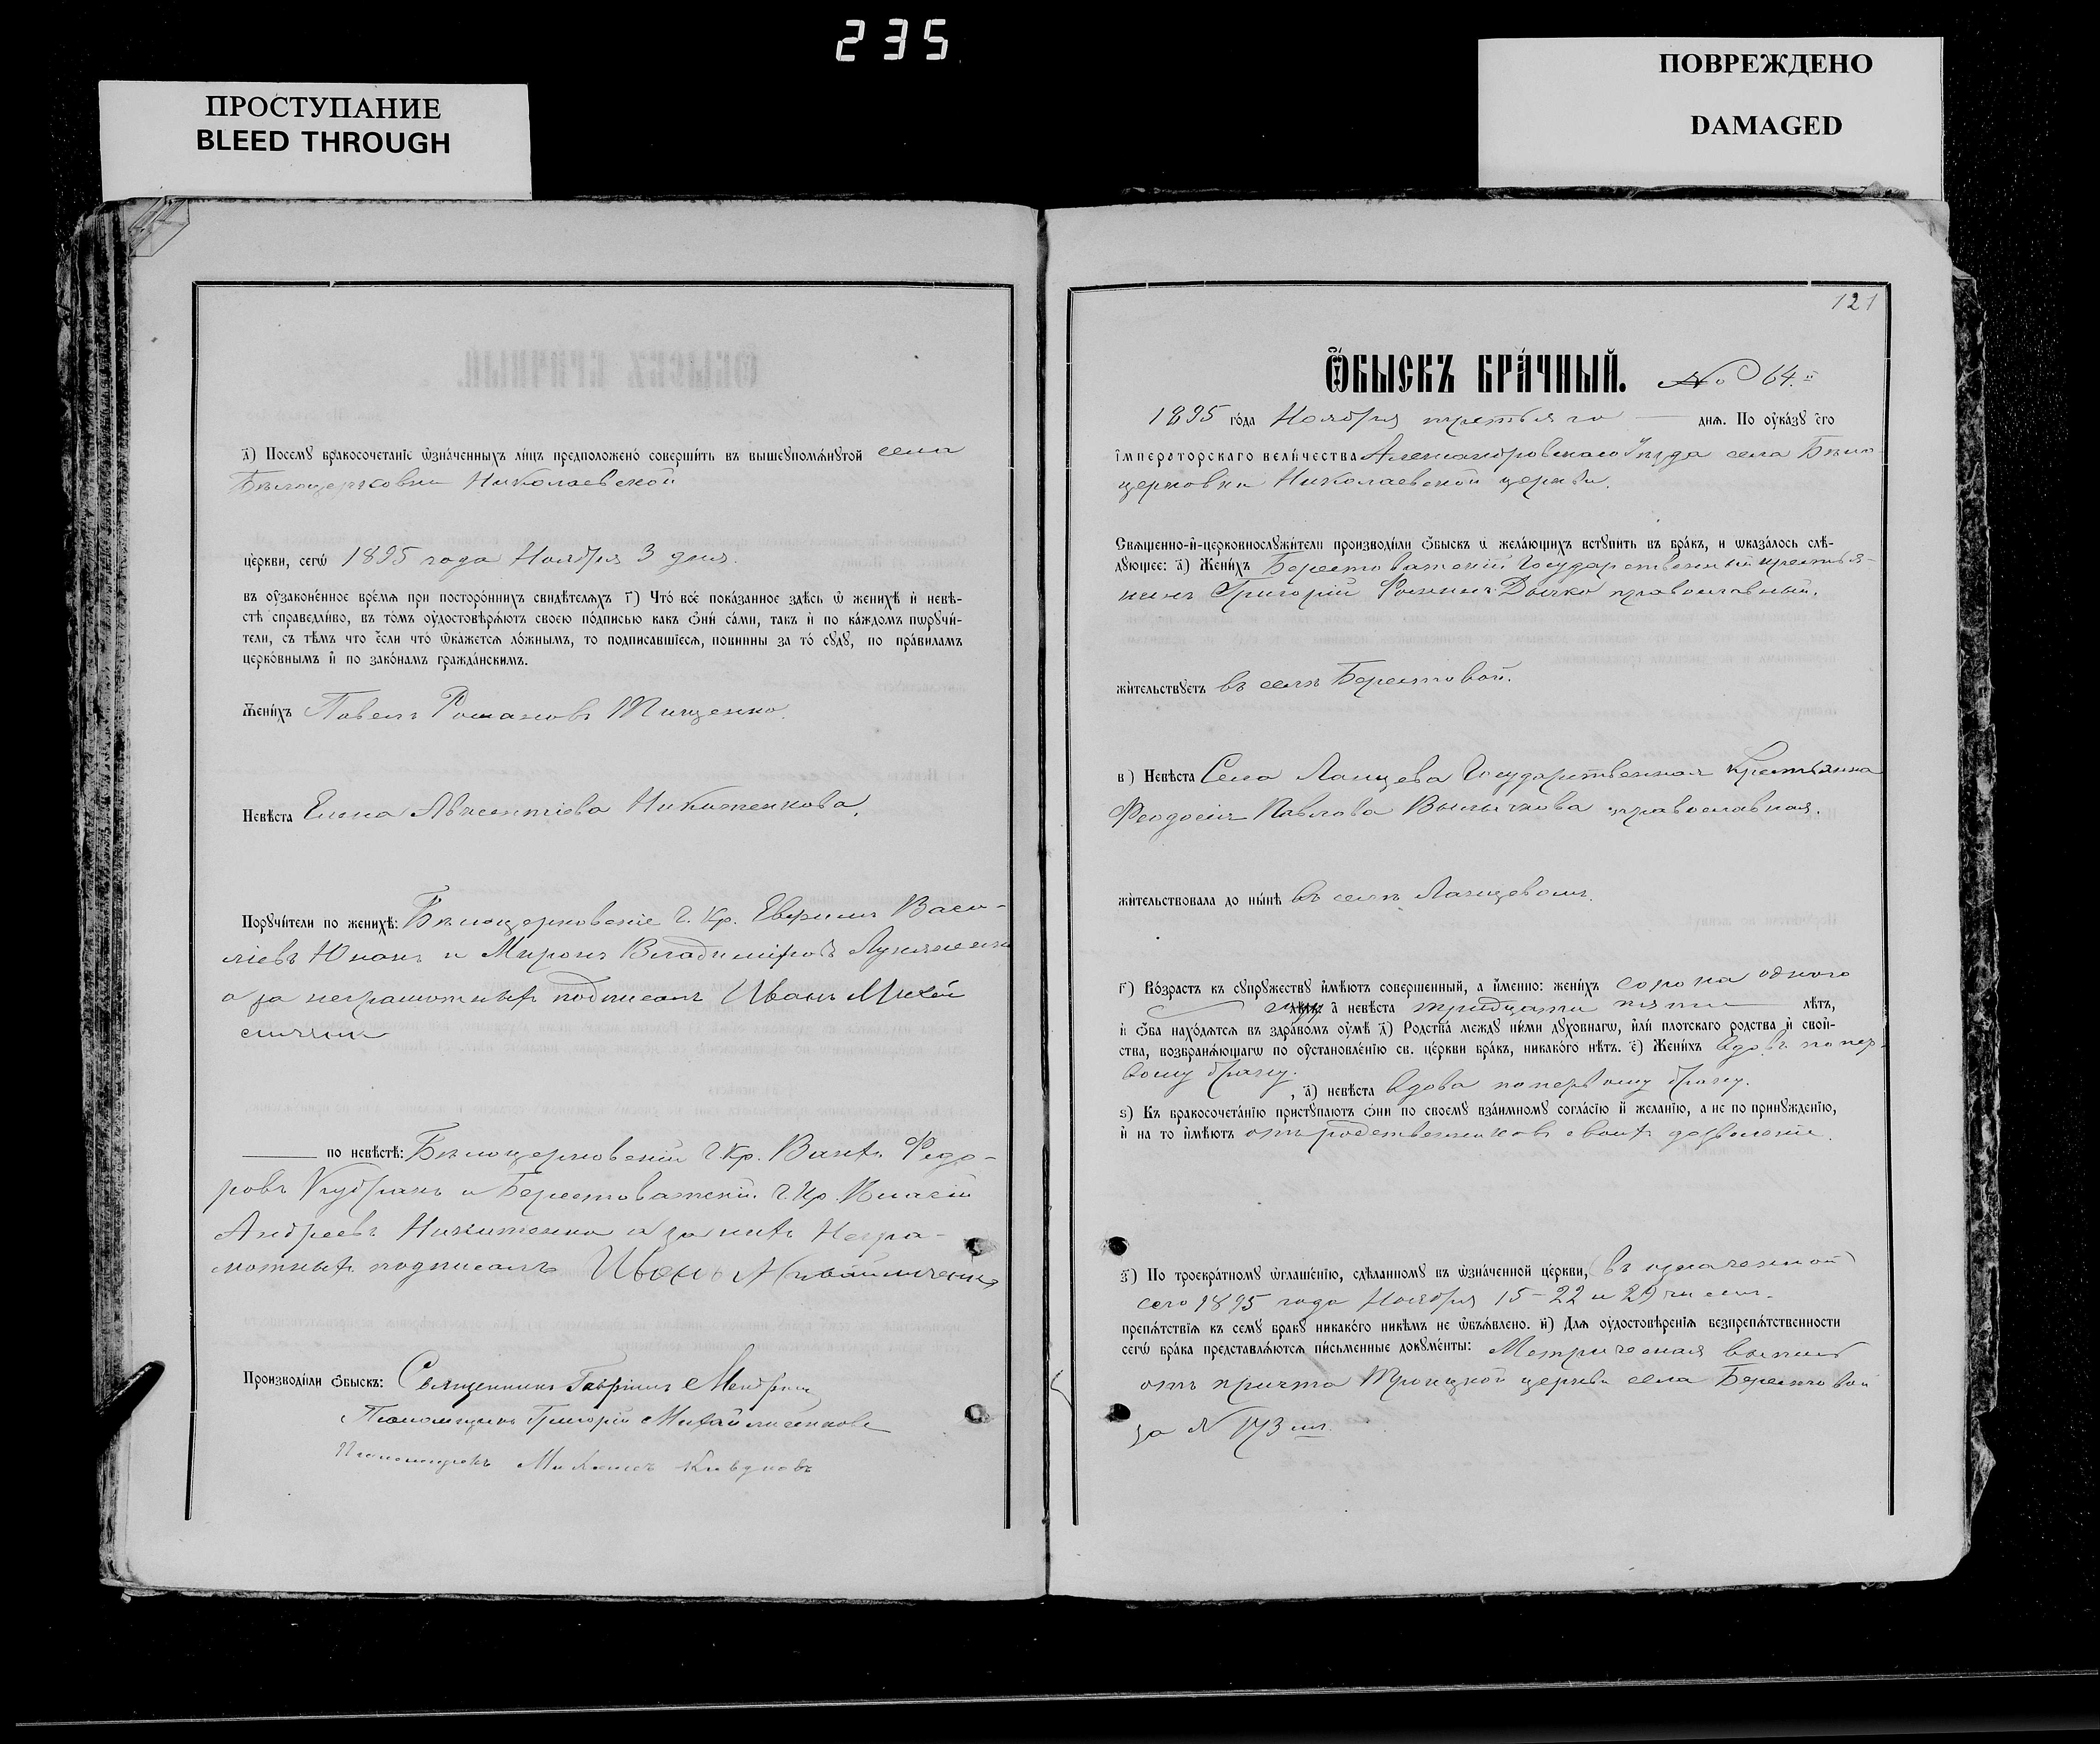 235
ПРОСТУПАНИЕ
BLEED THROUGH
ПОВРЕЖДЕНО
DAMAGED
д) Посему бракосочетаніе ѡзначенныхъ лицъ предположено совершить въ вышеупомянутой села
Бѣлоцерковки Николаевской
церкви, сегѡ 1895 года Ноября 3 дня.
въ оузаконенное время при постороннихъ свидѣтеляхъ г) Что все показанное здѣсь ѡ женихѣ и невѣ-
стѣ справедливо, въ томъ оудостовѣряютъ своею подписью какъ ѻни сами, такъ и по каждомъ пѡручи-
тели, съ тѣмъ что если что ѡкажется ложнымъ, то подписавшіеся, повинны за то суду, по правиламъ
церковнымъ и по законамъ гражданскимъ.
Женихъ Павелъ Романовъ Тищенко.
Невѣста Елена Авксентіева Никитенкова.
Поручители по женихѣ: Бѣлоцерковскіе Г. Кр. Ефимъ Васи-
ліевъ Юнакъ и Миронъ Владиміровъ Лукяненко
а за неграмотныхъ подписалъ Иванъ Михай
по невѣстѣ: Бѣлоцерковскій Г. Кр. Федо-
ровъ Кудринъ и Берестоватскій Г. Кр. Власій
Андреевъ Никитенко а за нихъ негра-
мотныхъ подписалъ Иванъ
Производили ѻбыскъ: Священникъ Гавріилъ
Псаломщикъ Григорій Михайличенковъ
Псаломщикъ
121
Ѻбыскъ брачный. No 64.й
1895 года Ноября третьяго дня. По оуказу его
императорскаго величества Александровскаго уѣзда села Бѣло
церковки Николаевской церкви.
Священно-и-церковнослужители производили ѻбыскъ ѡ желающихъ вступить въ бракъ, и ѡказалось слѣ-
дующее: а) Женихъ Берестоватскій Государственный крестья-
нинъ Григорій Фоминъ Дычко православный.
жительствуетъ въ селѣ Берестовой.
в) Невѣста Села Ланцева Государственная Крестьянка
Феодосія Павлова православная.
жительствовала до нынѣ въ селѣ Ланцевомъ.
г) Возрастъ къ супружеству имѣютъ совершенный, а именно: женихъ сорока одного
года а невѣста тридцати пяти лѣтъ,
и ѻба находятся въ здравомъ оумѣ д) Родства между ними духовнагѡ, или плотскаго родства и свой-
ства, возбраняющагѡ по оустановленію св. церкви бракъ, никакого нѣтъ. е) Женихъ вдовъ по пер-
вому браку.
, а) невѣста вдова по первому браку.
ѕ) Къ бракосочетанію приступаютъ ѻни по своему взаимному согласію и желанію, а не по принужденію,
и на то имѣютъ отъ родственниковъ своихъ дозволеніе.
з) По троекратному ѡглашенію, сдѣланному въ ѡзначенной церкви, въ означенной
сего 1895 года Ноября 15-22 и 29 числ.
препятствія къ сему браку никакого никѣмъ не ѡбъявлено. и) Для оудостовѣренія безпрепятственности
сегѡ брака представляются письменные документы: Метрическая выпись
отъ причта Троицкой церкви села Берестовой
за N 173 мъ.